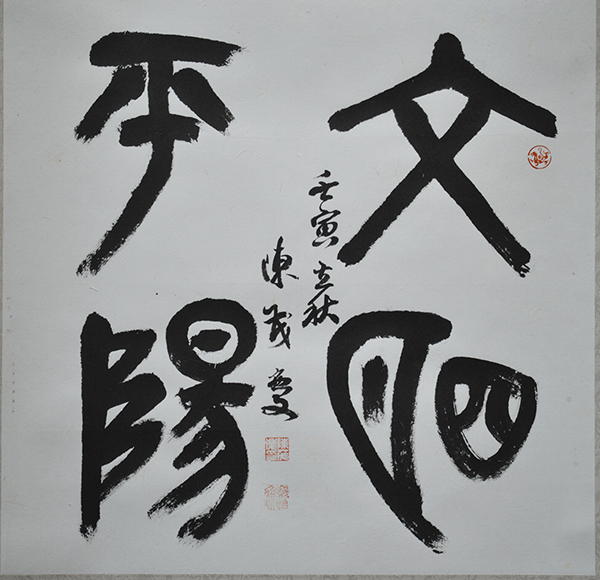 文明
平陽
壬寅立秋
陳茂